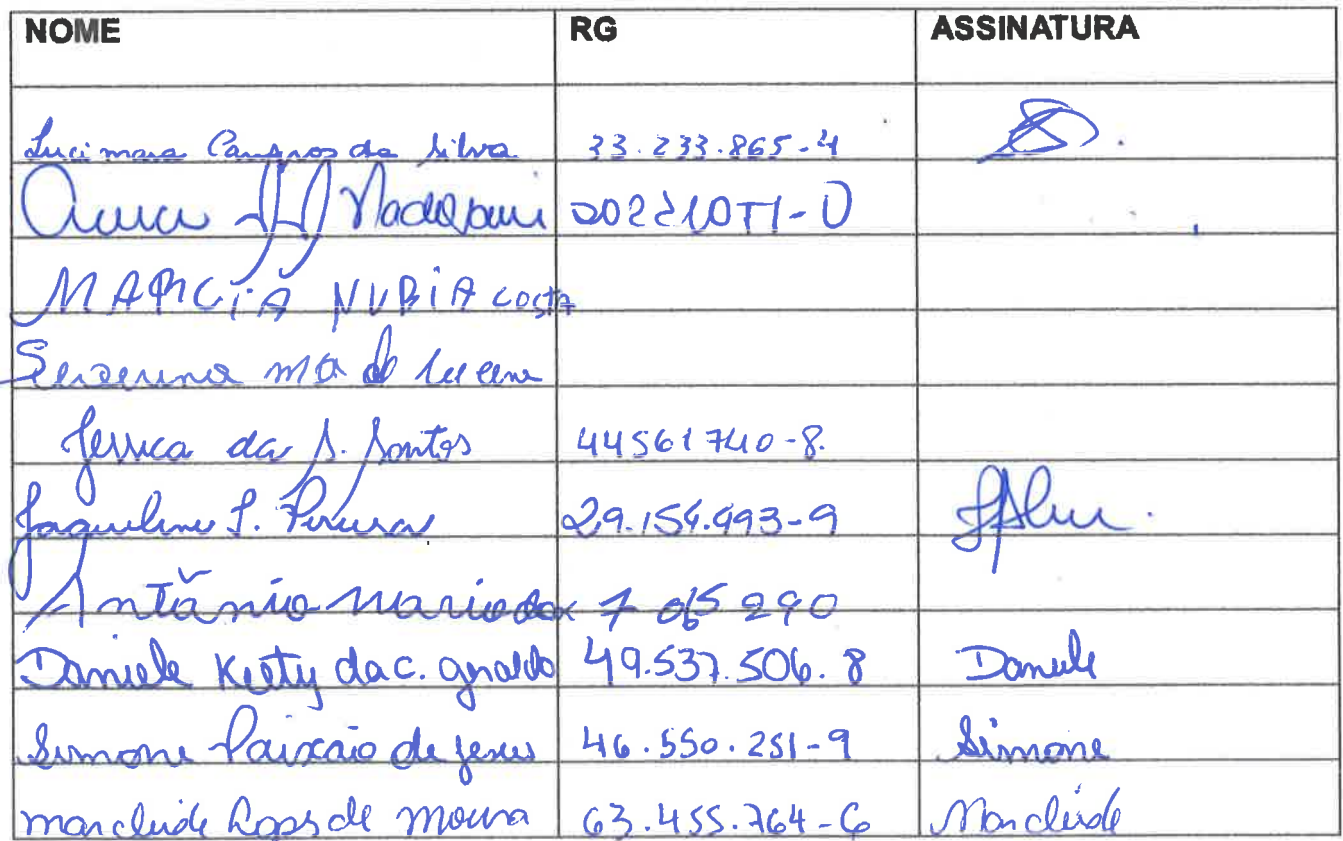 NOME RG ASSINATURA
Lucimara Campos da Silva 33.233.865-4
MARCIA NUBIA COSTA
Severina Mª de Lucena
Jessica da S. Santos 44561740-8.
Jaqueline S. Pereira 29.154.993-9
Antãnio Mario 7 065 290
Daniele Keety da C. Geraldo 49.537.506.8 Daniele
Simone Paixão de Jesus 46.550.251-9 Simone
Marcleide Lopes de Moura 63.455.764-6 Marcleide